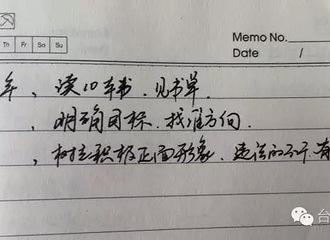 Memo No.
Th Fr Sa Su
Date /
年、读10本书.见书单.
、明确目标.找准方向.
、树立积极正面形象.违法的不干.有
台